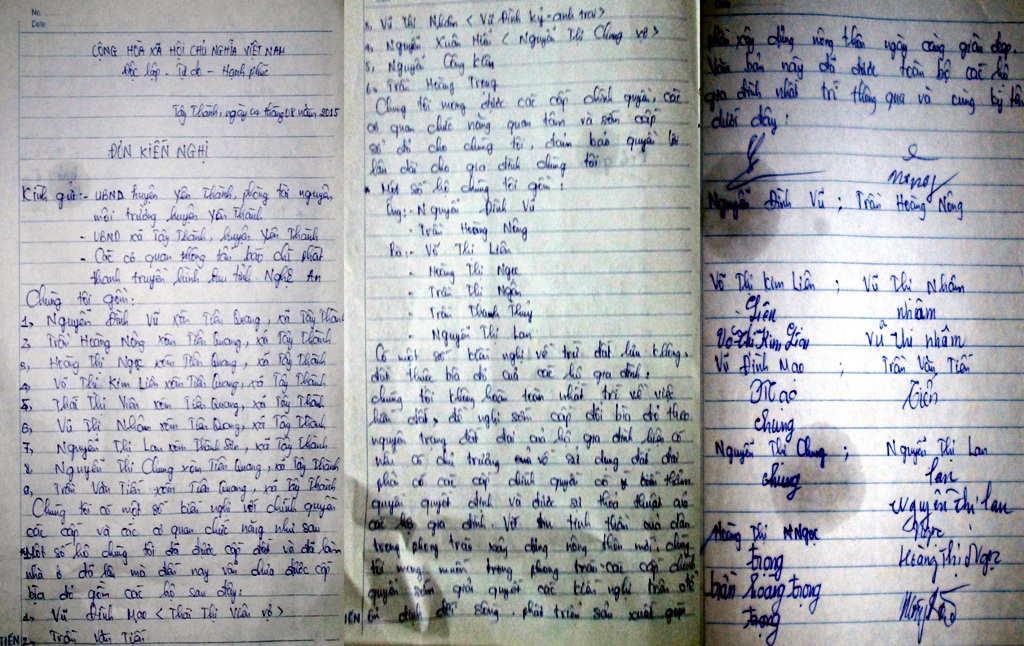 No.
Date
CỘNG HÒA XÃ HỘI CHỦ NGHĨA VIỆT NAM
Độc lập - Tự do - Hạnh phúc
Tây Thành, ngày 09 tháng 08 năm 2015
ĐƠN KIẾN NGHỊ
Kính gửi: - UBND huyện Yên Thành, phòng tài nguyên
môi trường huyện Yên Thành
- UBND xã Tây Thành, huyện Yên Thành
- Các cơ quan thông tấn báo chí phát
thanh truyền hình tỉnh Nghệ An
Chúng tôi gồm:
1, Nguyễn Đình Vũ xóm Tiên Quang, xã Tây Thành
2, Trần Hoàng Nông xóm Tiên Quang, xã Tây Thành
3, Hoàng Thị Ngọc xóm Tiên Quang, xã Tây Thành
4, Võ Thị Kim Liên xóm Tiên Quang, xã Tây Thành
5, Thái Thị Viên xóm Tiên Quang, xã Tây Thành
6, Vũ Thị Nhâm xóm Tiên Quang, xã Tây Thành
7, Nguyễn Thị Lan xóm Thành Sơn, xã Tây Thành
8, Nguyễn Thị Chung xóm Tiên Quang, xã Tây Thành
9, Trần Văn Tiến xóm Tiên Quang, xã Tây Thành
Chúng tôi có một số kiến nghị với chính quyền
các cấp và các cơ quan chức năng như sau
Một số hộ chúng tôi đã được cấp đất và đã làm
nhà ở đã lâu mà đến nay vẫn chưa được cấp
bìa đỏ gồm các hộ sau đây:
1, Vũ Đình Mao < Thái Thị Viên vợ >
2, Trần Văn Tiến
TIẾN
3, Vũ Thị Nhâm < Vũ Đình Kỷ - anh trai >
4, Nguyễn Xuân Hiển < Nguyễn Thị Chung vợ >
5, Nguyễn Công
6, Trần Hoàng Trọng
Chúng tôi mong được các cấp chính quyền, các
cơ quan chức năng quan tâm và sớm cấp
sổ đỏ cho chúng tôi, đảm bảo quyền lợi
lâu dài cho gia đình chúng tôi
* Một số hộ chúng tôi gồm:
Ông: - Nguyễn Đình Vũ
- Trần Hoàng Nông
Bà: - Võ Thị Liên
- Hoàng Thị Ngọc
- Trần Thị Ngân
- Trần Thanh Thủy
- Nguyễn Thị Lan
Có một số kiến nghị về trừ đất hiến không,
đất thừa bìa đỏ của các hộ gia đình:
chúng tôi không hoàn toàn nhất trí về việc
hiến đất, đề nghị sớm cấp đổi bìa đỏ theo
nguyên trạng đất đai của hộ gia đình hiện có
nếu có chủ trương về sử dụng đất đai
phải có các cấp chính quyền có thẩm
quyền quyết định và được sự thỏa thuận của
các hộ gia đình. Với tinh thần của dân
trong phong trào xây dựng nông thôn mới, chúng
tôi mong muốn trong phong trào các cấp chính
quyền sớm giải quyết các kiến nghị trên để
ổn định đời sống phát triển sản xuất góp
IẾN
phần xây dựng nông thôn ngày càng giàu đẹp.
Văn bản này đã được toàn bộ các hộ
gia đình nhất trí thông qua và cùng ký tên
dưới đây:
Nguyễn Đình Vũ ; Trần Hoàng Nông
Võ Thị Kim Liên ; Vũ Thị Nhâm
Liên nhâm
Võ Thị Kim Liên Vũ thị nhâm
Vũ Đình Mao ; Trần Văn Tiến
Mao Tiến
chung
Nguyễn Thị Chung ; Nguyễn Thị Lan
chung lan
Nguyễn Thị Lan
Hoàng Thị Ngọc Ngọc
trọng Hoàng Thị Ngọc
trần hoàng trọng
trọng